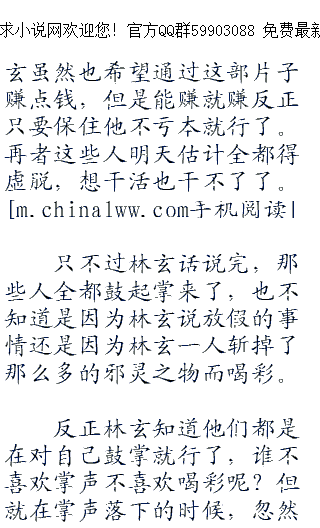 求小说网欢迎您！官方QQ群59903088 免费最新
玄虽然也希望通过这部片子
赚点钱，但是能赚就赚反正
只要保住他不亏本就行了。
再者这些人明天估计全都得
虚脱，想干活也干不了了。
[m.chinalww.com手机阅读|
只不过林玄话说完，那
些人全都鼓起掌来了，也不
知道是因为林玄说放假的事
情还是因为林玄一人斩掉了
那么多的邪灵之物而喝彩。
反正林玄知道他们都是
在对自己鼓掌就行了，谁不
喜欢掌声不喜欢喝彩呢？但
就在掌声落下的时候，忽然